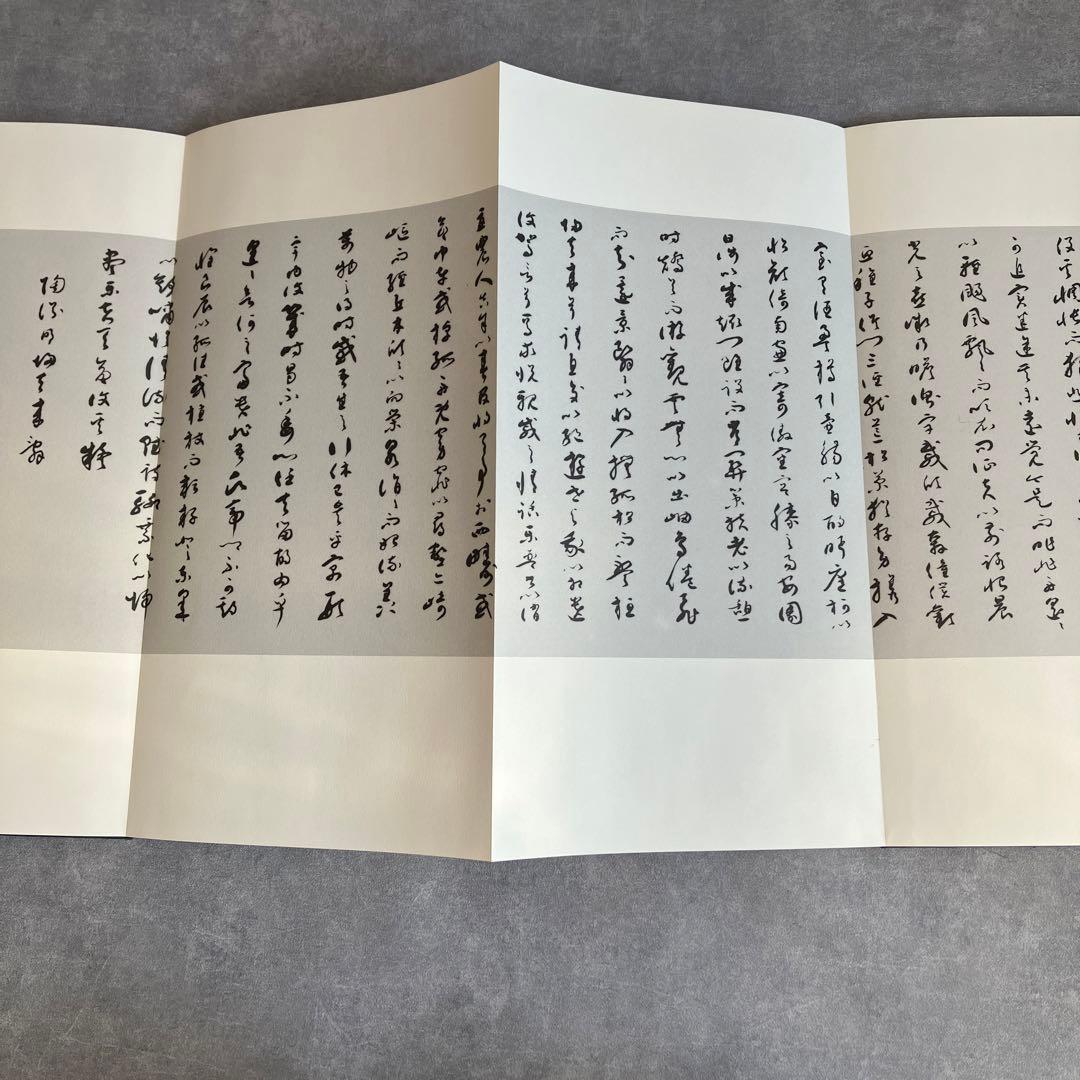 役奚惆悵而獨悲悟
可追寔迷途其未遠覺今是而昨非舟遙〻
以輕颺風飄〻而吹衣問征夫以前路恨晨
光之熹微乃瞻衡宇載欣載奔僮僕歡
迎稚子候門三徑就荒松菊猶存攜幼入
室有酒盈樽引壺觴以自酌眄庭柯以
怡顏倚南窗以寄傲審容膝之易安園
日涉以成趣門雖設而常關策扶老以流憩
時矯首而遐觀雲無心以出岫鳥倦飛
而知還景翳〻以將入撫孤松而盤桓
歸去來兮請息交以絕遊世與我以相遺
復駕言兮焉求悅親戚之情話樂琴書以消
憂農人告余以春及將有事於西疇或
命巾車或棹孤舟既窈窕以尋壑亦崎
嶇而經丘木欣〻以向榮泉涓〻而始流善
萬物之得時感吾生之行休已矣乎寓形
宇內復幾時曷不委心任去留胡為乎
遑〻兮欲何之富貴非吾願帝鄉不可期
懷良辰以孤往或植杖而耘耔登東皋
以舒嘯臨清流而賦詩聊乘化以歸
盡樂夫天命復奚疑
陶淵明歸去來辭